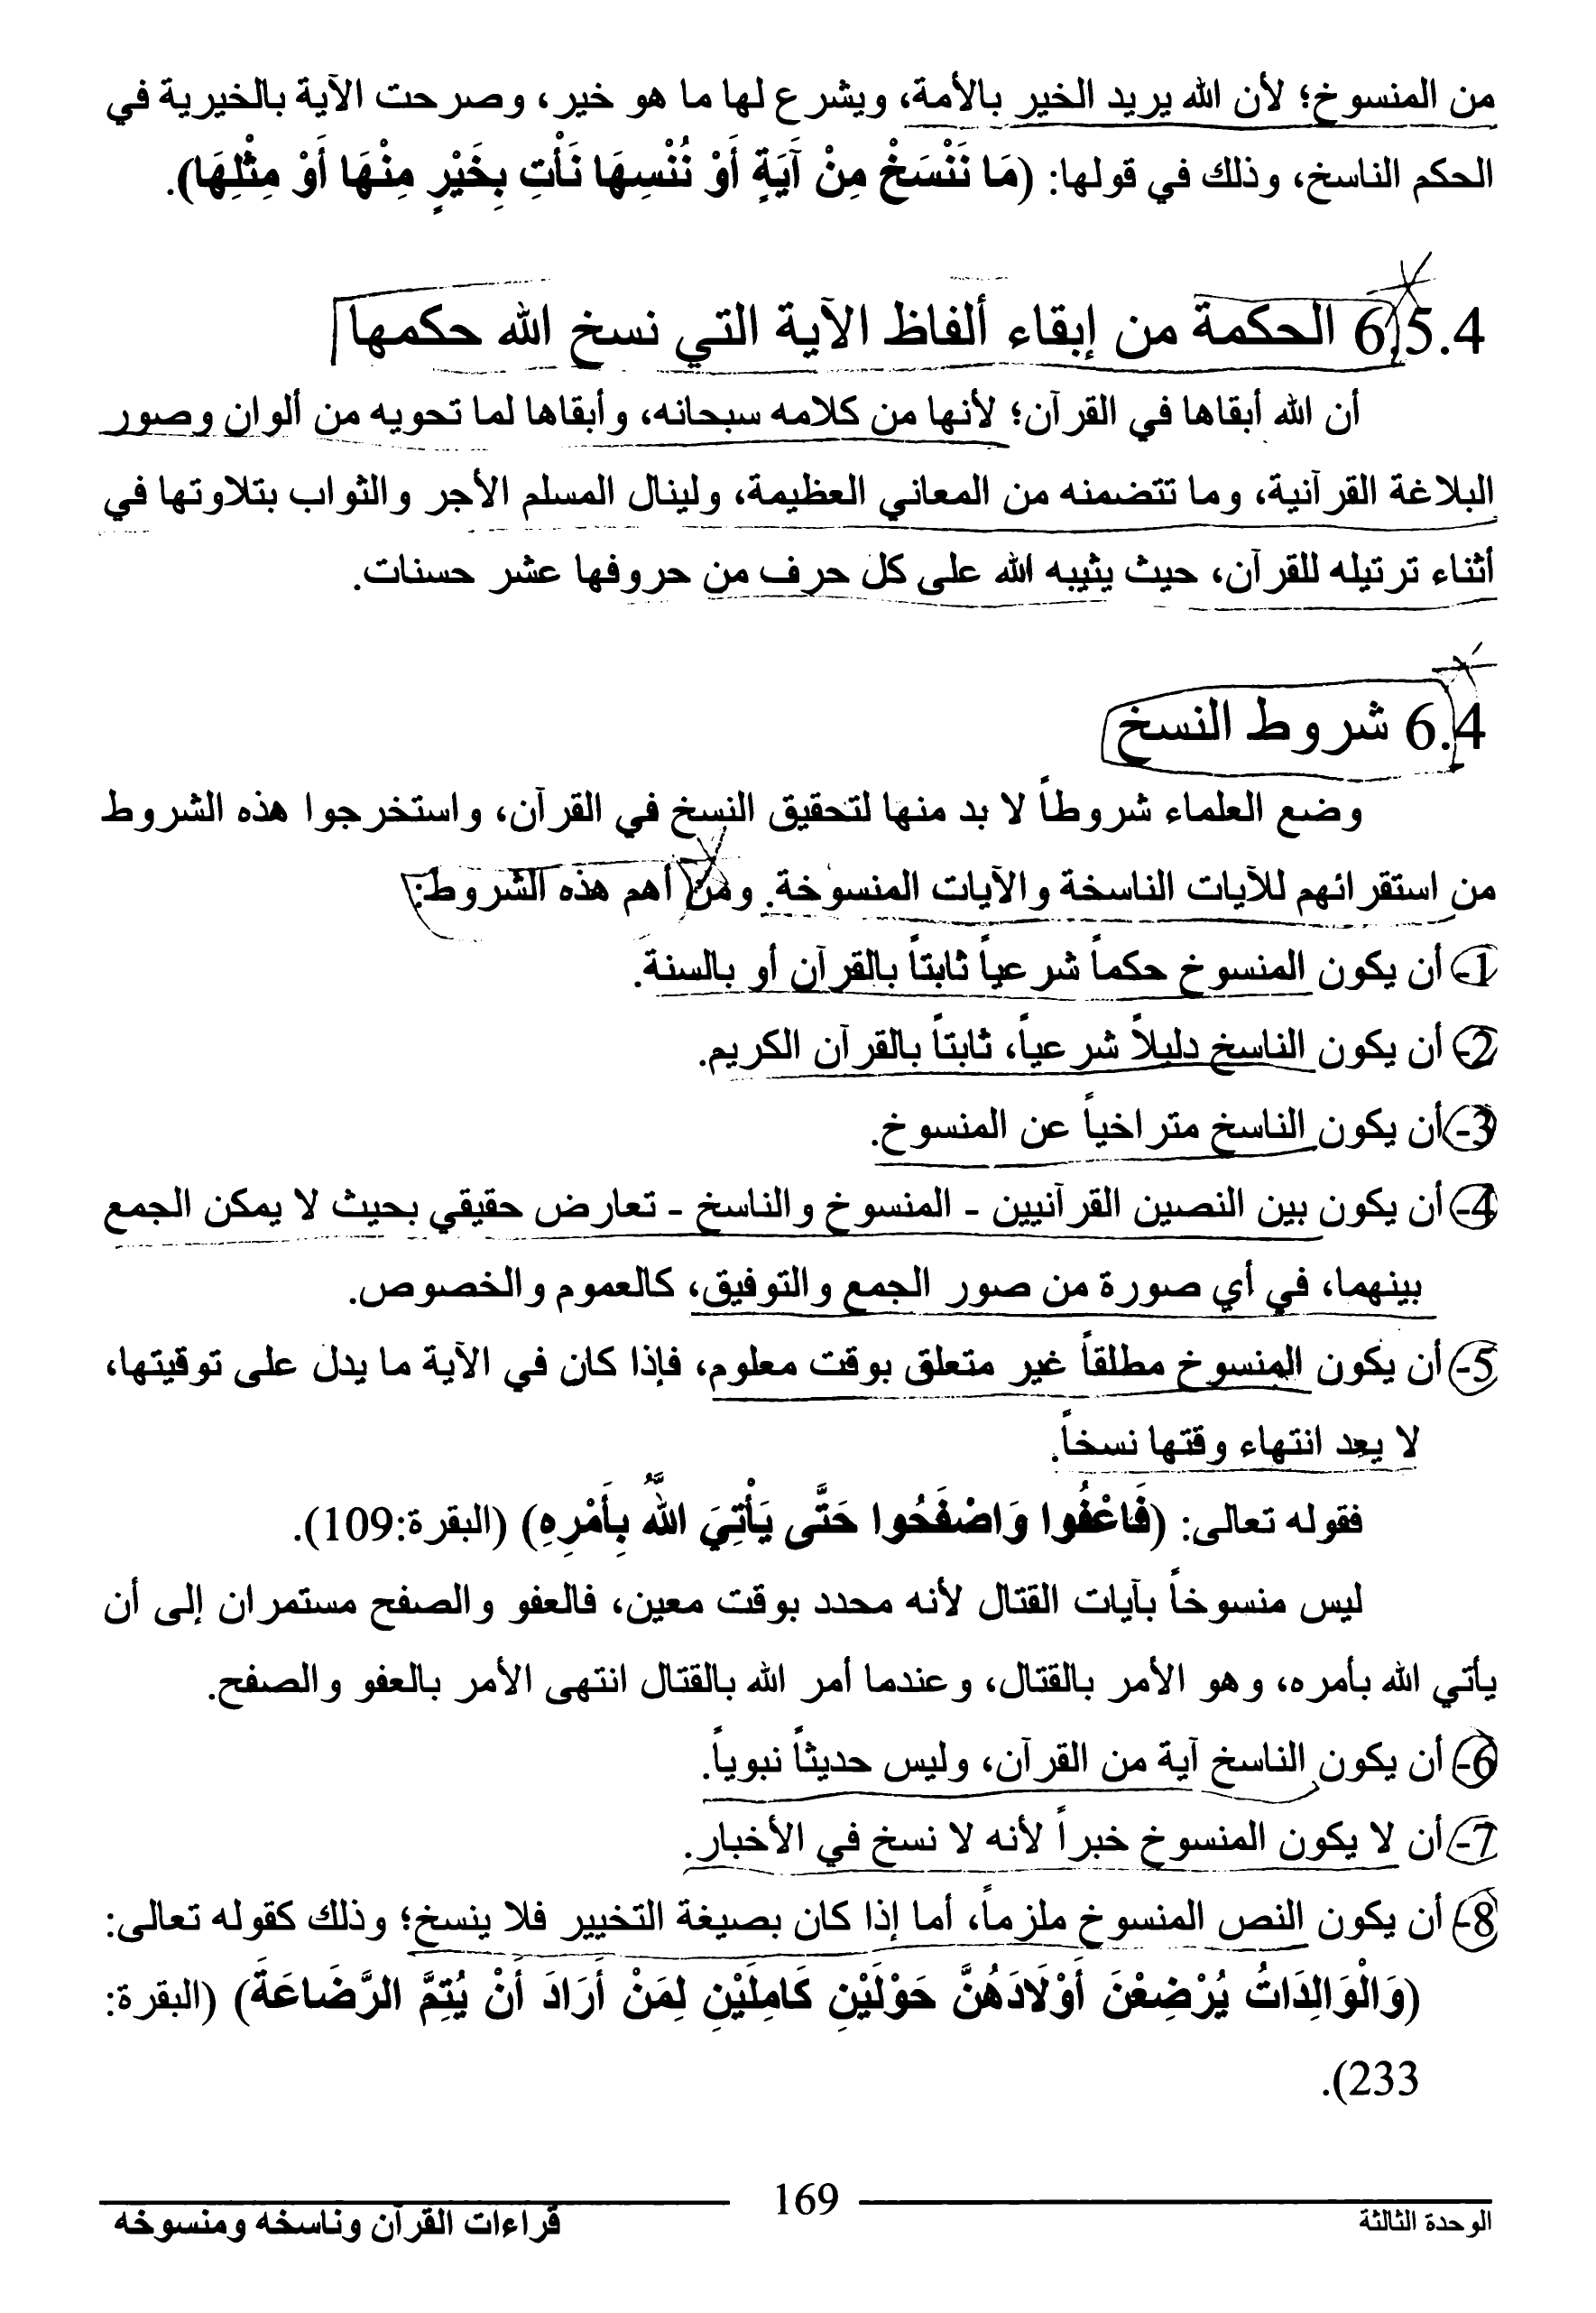 من المنسوخ؛ لأن الله يريد الخير بالأمة، ويشرع لها ما هو خير، وصرحت الآية بالخيرية في
الحكم الناسخ، وذلك في قولها: (مَا نَنْسَخْ مِنْ آيَةٍ أَوْ نُنْسِهَا نَأْتِ بِخَيْرٍ مِنْهَا أَوْ مِثْلِهَا).
6.5.4 الحكمة من إبقاء ألفاظ الآية التي نسخ الله حكمها
أن الله أبقاها في القرآن؛ لأنها من كلامه سبحانه، وأبقاها لما تحويه من ألوان وصور
البلاغة القرآنية، وما تتضمنه من المعاني العظيمة، ولينال المسلم الأجر والثواب بتلاوتها في
أثناء ترتيله للقرآن، حيث يثيبه الله على كل حرف من حروفها عشر حسنات.
6.4 شروط النسخ
وضع العلماء شروطاً لا بد منها لتحقيق النسخ في القرآن، واستخرجوا هذه الشروط
من استقرائهم للآيات الناسخة والآيات المنسوخة. ومن أهم هذه الشروط:
1- أن يكون المنسوخ حكماً شرعياً ثابتاً بالقرآن أو بالسنة.
2- أن يكون الناسخ دليلاً شرعياً، ثابتاً بالقرآن الكريم.
3- أن يكون الناسخ متراخياً عن المنسوخ.
4- أن يكون بين النصين القرآنيين - المنسوخ والناسخ - تعارض حقيقي بحيث لا يمكن الجمع
بينهما، في أي صورة من صور الجمع والتوفيق، كالعموم والخصوص.
5- أن يكون المنسوخ مطلقاً غير متعلق بوقت معلوم، فإذا كان في الآية ما يدل على توقيتها،
لا يعد انتهاء وقتها نسخاً.
فقوله تعالى: (فَاعْفُوا وَاصْفَحُوا حَتَّى يَأْتِيَ اللَّهُ بِأَمْرِهِ) (البقرة:109).
ليس منسوخاً بآيات القتال لأنه محدد بوقت معين، فالعفو والصفح مستمران إلى أن
يأتي الله بأمره، وهو الأمر بالقتال، وعندما أمر الله بالقتال انتهى الأمر بالعفو والصفح.
6- أن يكون الناسخ آية من القرآن، وليس حديثاً نبوياً.
7- أن لا يكون المنسوخ خبراً لأنه لا نسخ في الأخبار.
8- أن يكون النص المنسوخ ملزماً، أما إذا كان بصيغة التخيير فلا ينسخ؛ وذلك كقوله تعالى:
(وَالْوَالِدَاتُ يُرْضِعْنَ أَوْلَادَهُنَّ حَوْلَيْنِ كَامِلَيْنِ لِمَنْ أَرَادَ أَنْ يُتِمَّ الرَّضَاعَةَ) (البقرة:
233).
169
الوحدة الثالثة
قراءات القرآن وناسخه ومنسوخه